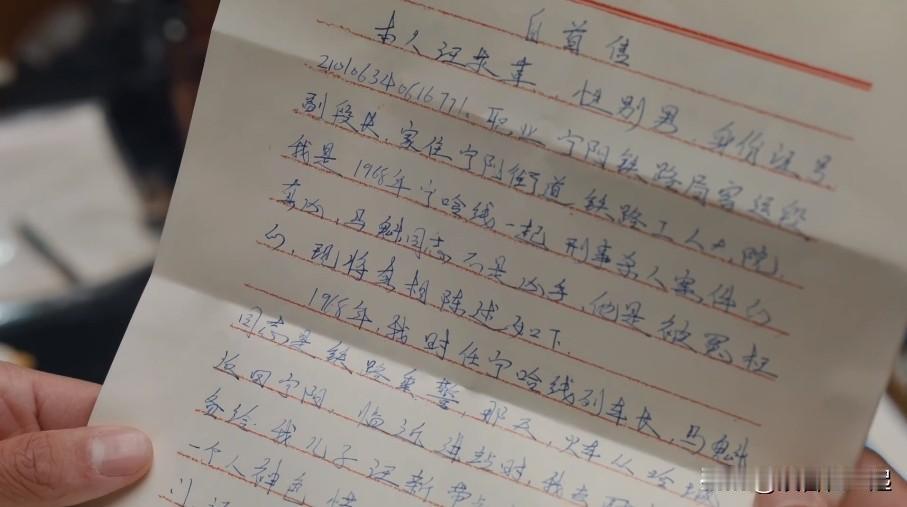 自首信
本人汪永革,性别男,身份证号
210106340616771,职业宁阳铁路局客运段
副段长,家住宁阳街道铁路工人大院,
我是1968年宁哈线一起刑事杀人案件的
真凶,马魁同志不是凶手,他是被冤枉
的,现将真相陈述如下.
1968年,我时任宁哈线列车长,马魁
同志是铁路乘警,那天,火车从哈城
返回宁阳,临近进站时,我去
给我儿子汪新带
一个人神色